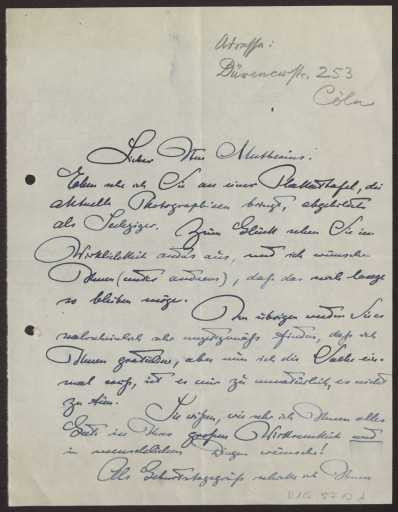 Adresse:
Dürenerstr. 253
Cöln
Lieber Herr Muthesius.
Eben sehe ich Sie an einer Plakattafel, die
aktuelle Photographieen bringt, abgebildet
als Sechziger. Zum Glück sehen Sie in
Wirklichkeit anders aus, und ich wünsche
Ihnen (unter anderem), daß das noch lange
so bleiben möge. Im übrigen werden Sie es
wahrscheinlich sehr unzeitgemäß finden, daß ich
Ihnen gratuliere, aber nun ich die Sache ein-
mal weiß, ist es mir zu unnatürlich, es nicht
zu tun. Sie wissen, wie sehr ich Ihnen alles
Gute in Ihrer großen Wirksamkeit und
in menschlichen Dingen wünsche!
Als Geburtstagsgruß schicke ich Ihnen